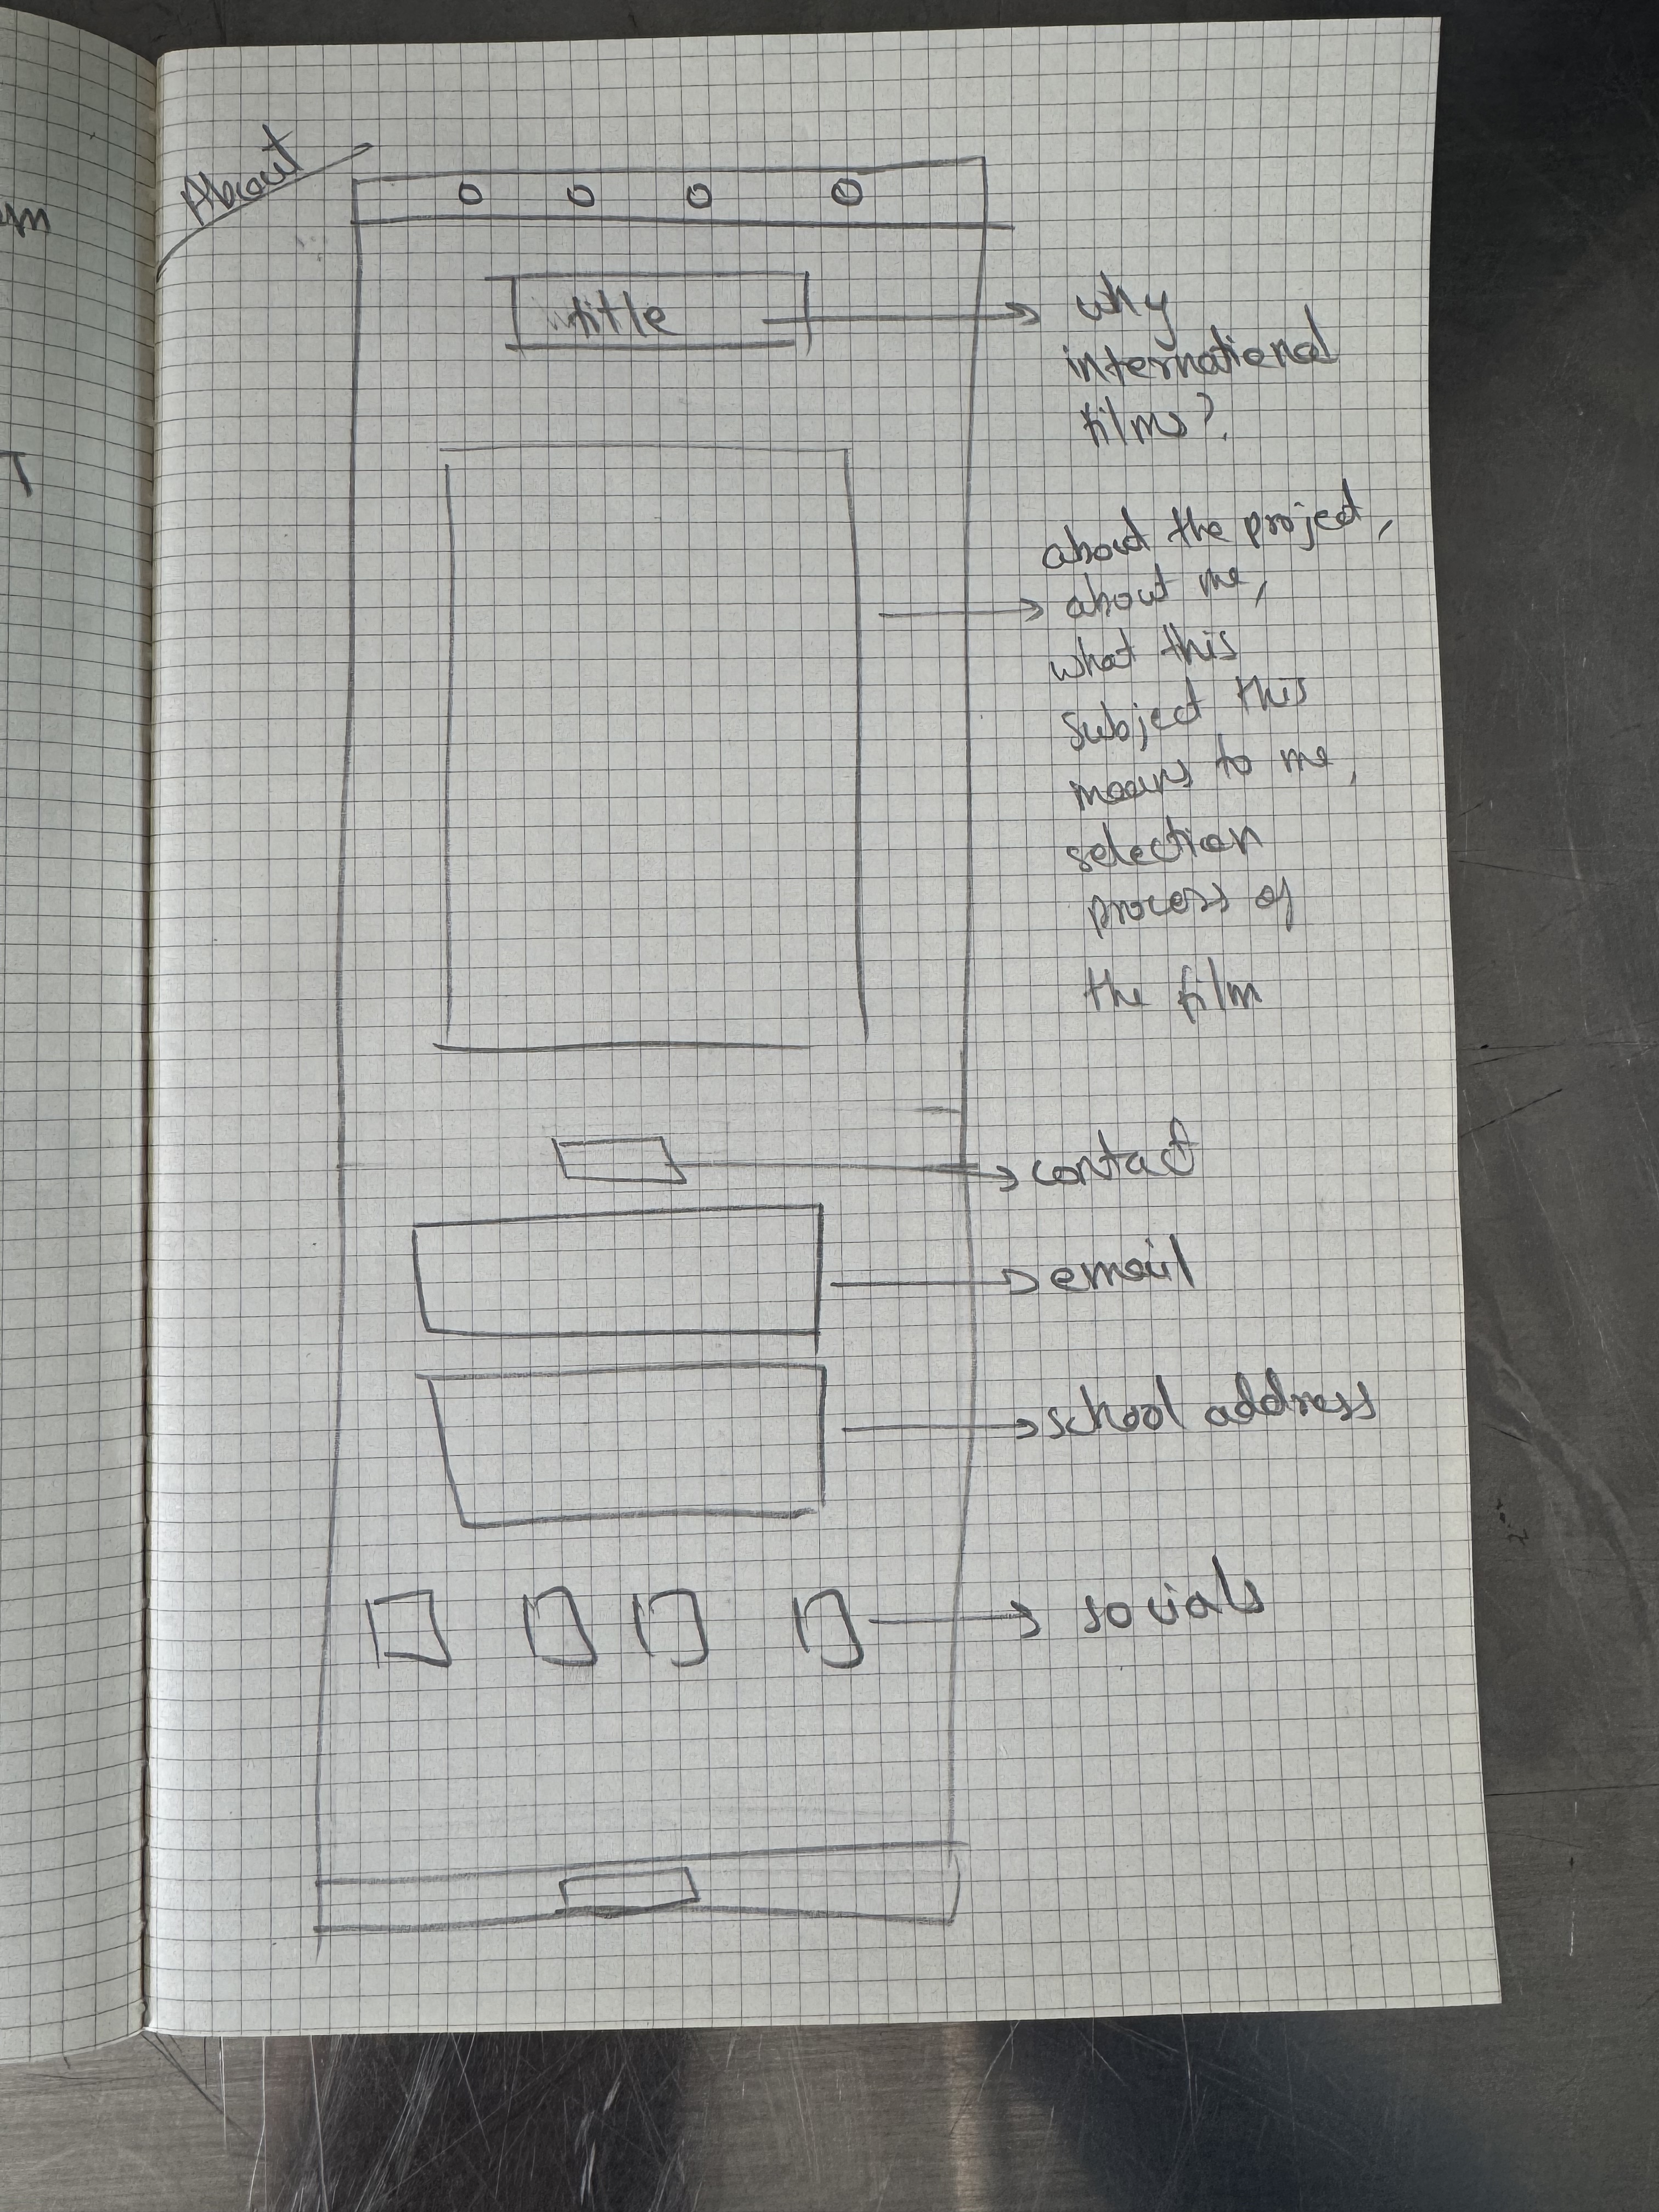 About
m
T
title
why
international
films?
about the project,
about me,
what this
subject this
means to me,
selection
process of
the film
contact
email
school address
socials